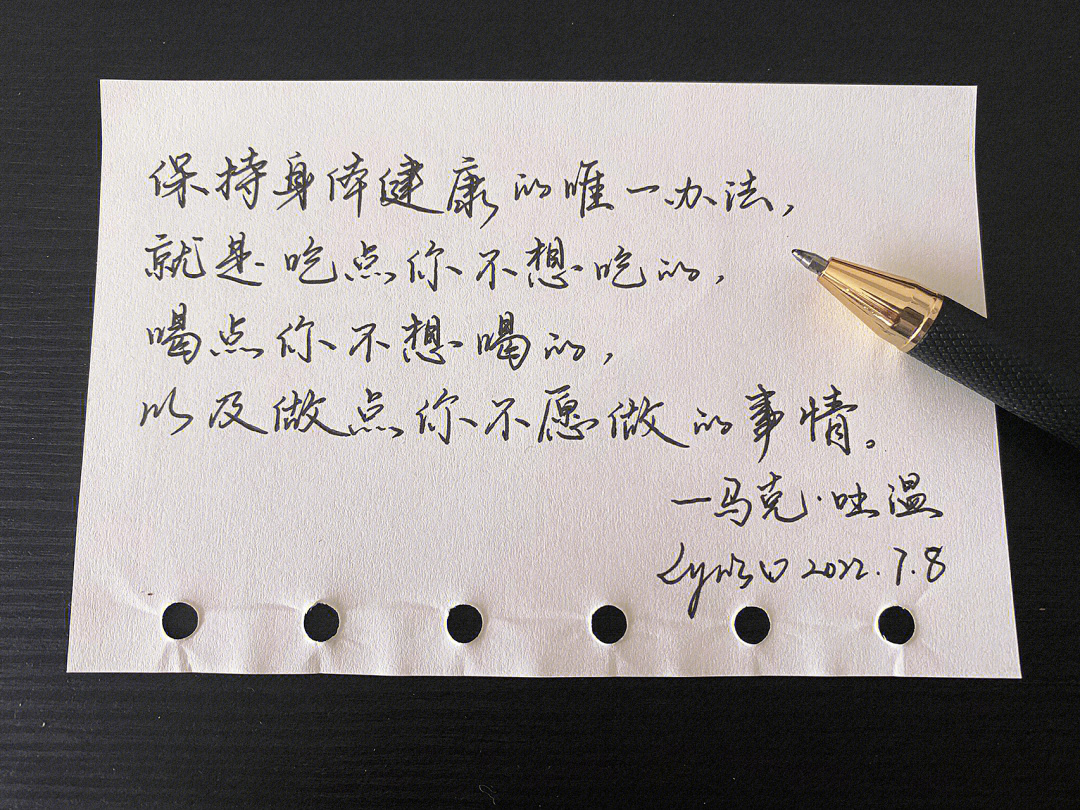 保持身体健康的唯一办法,
就是吃点你不想吃的,
喝点你不想喝的,
以及做点你不愿做的事情。
—马克·吐温
2022.7.8